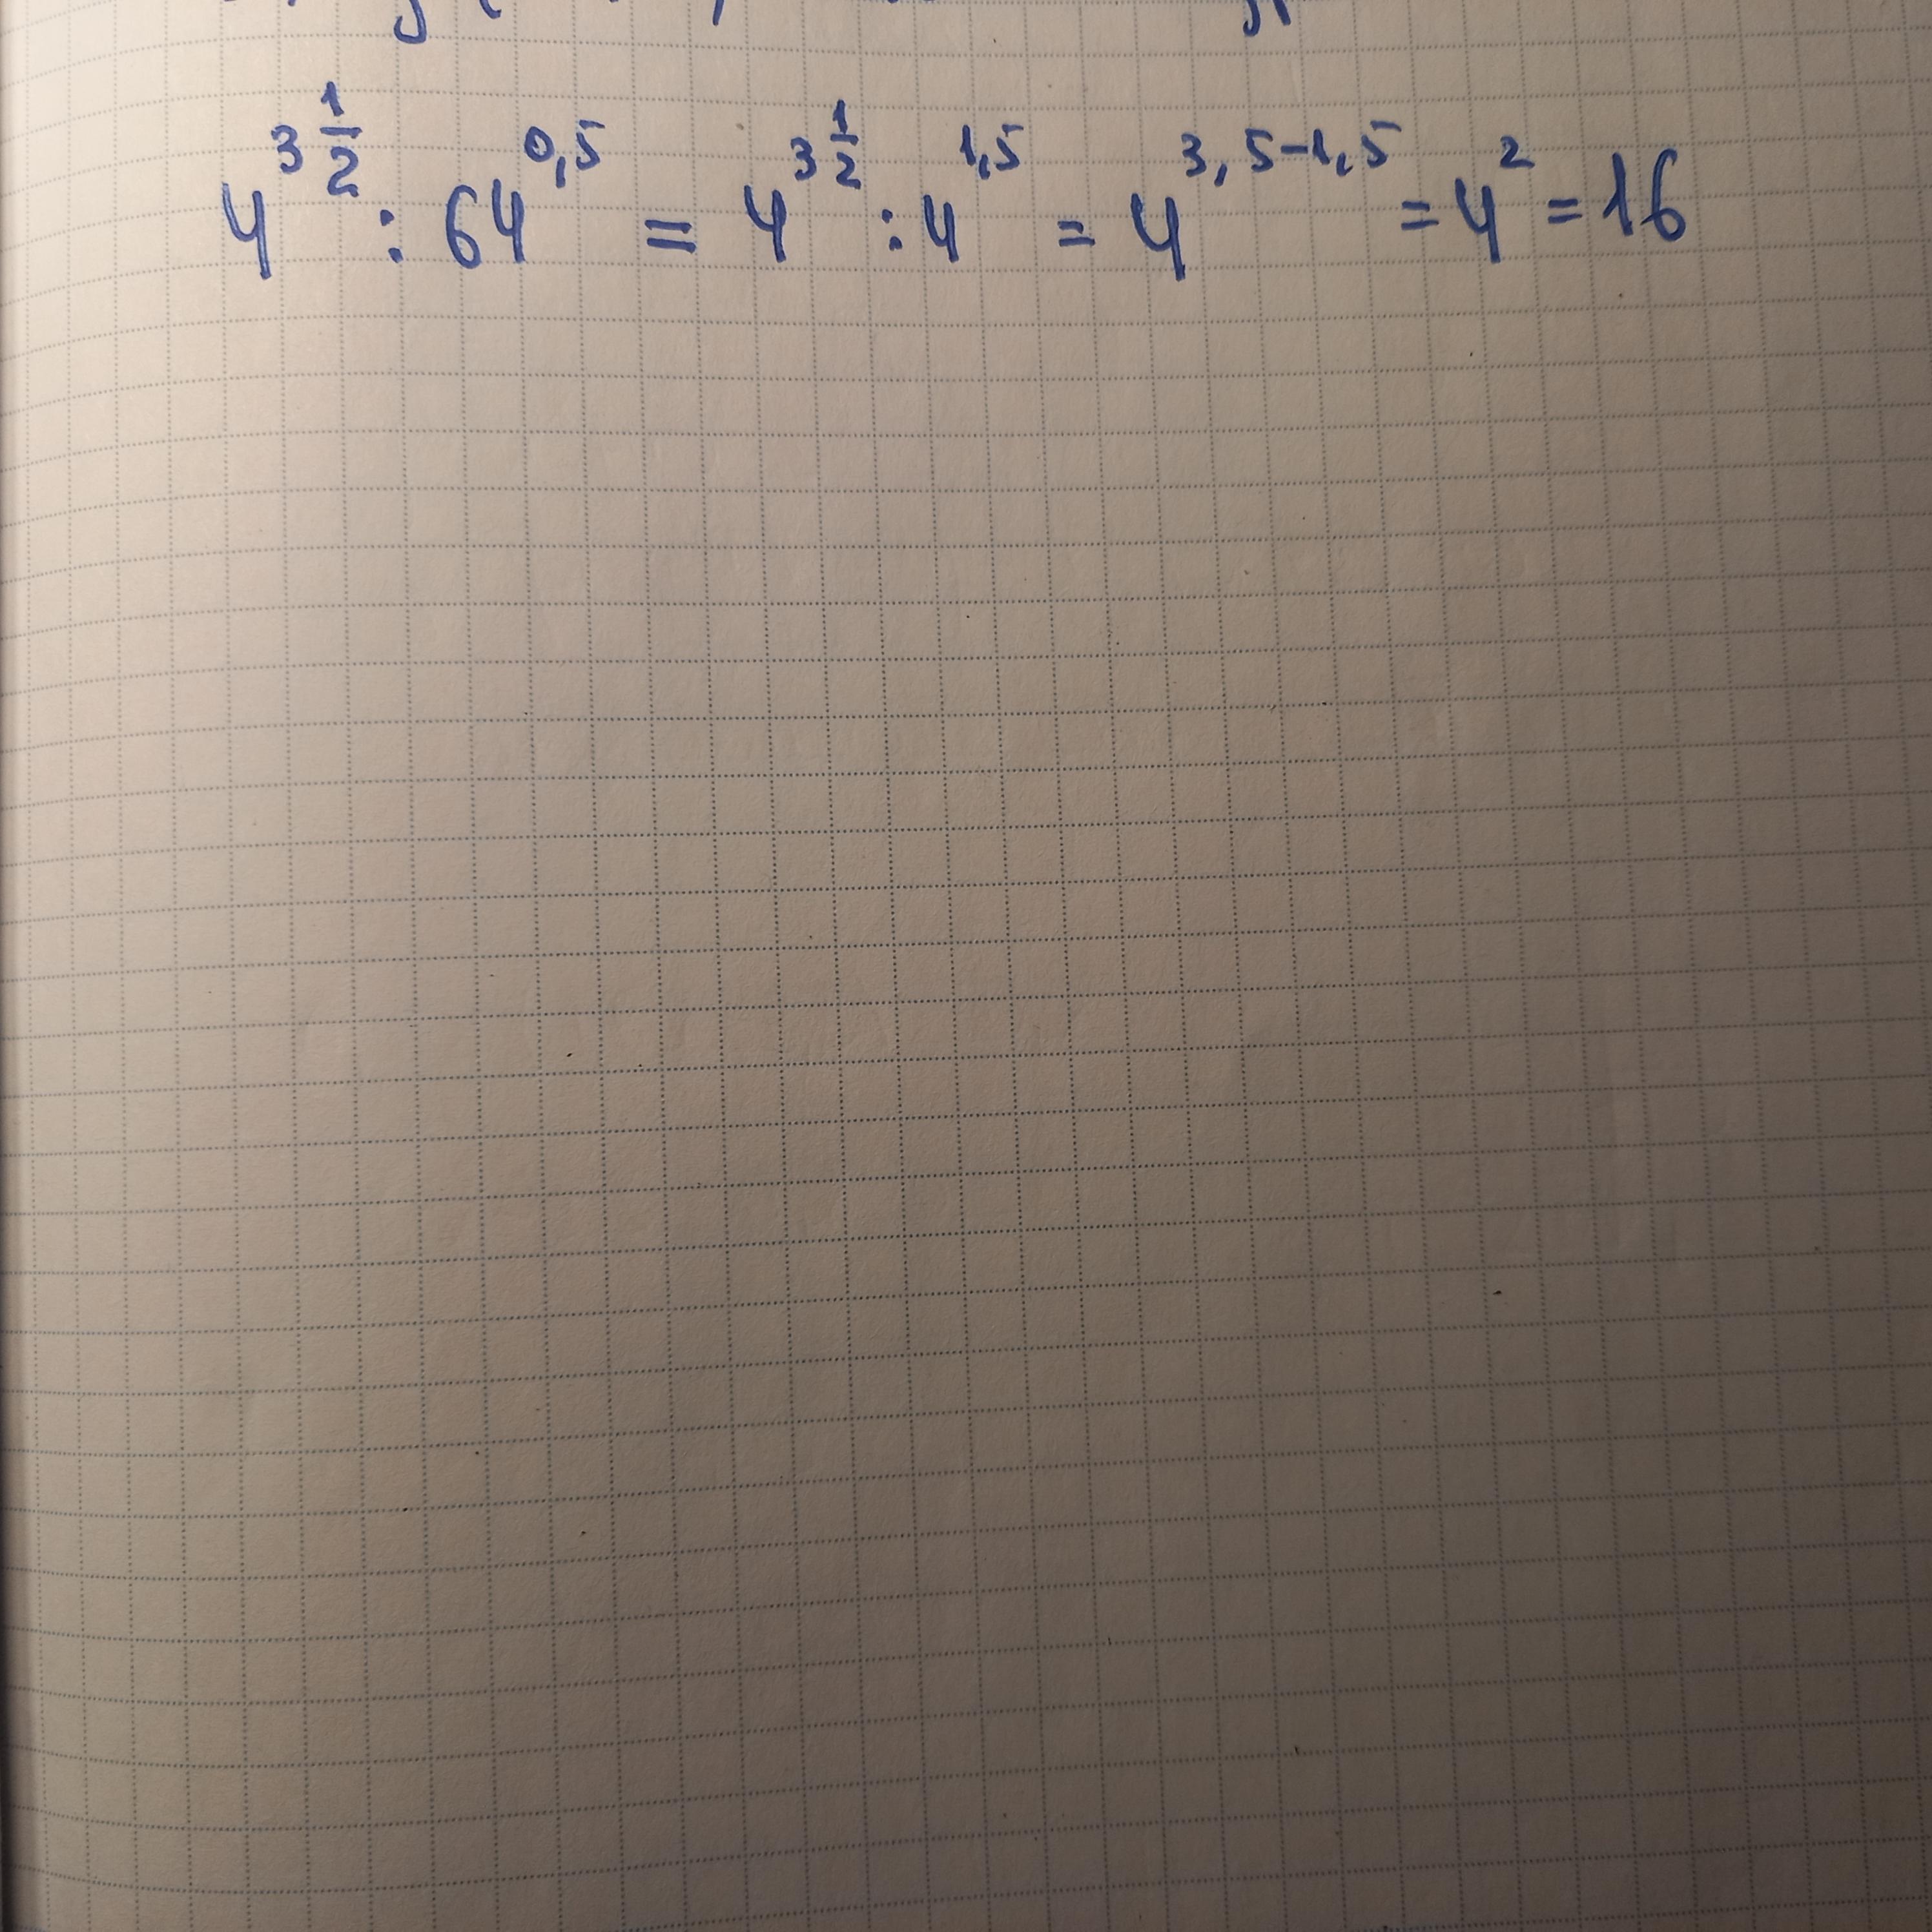 4^{3\frac{1}{2}} : 64^{0,5} = 4^{3\frac{1}{2}} : 4^{1,5} = 4^{3,5-1,5} = 4^2 = 16